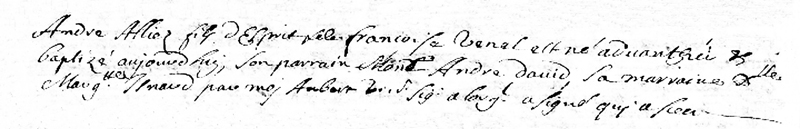 Andre Alliez fils d'Esprit et de francoise Venel est né advanthiéi et
baptizé aujourdhuj, son parrain Mons.r Andre david sa marraine d.lle
Marg.tte par moj Aubert signé qui a sceu